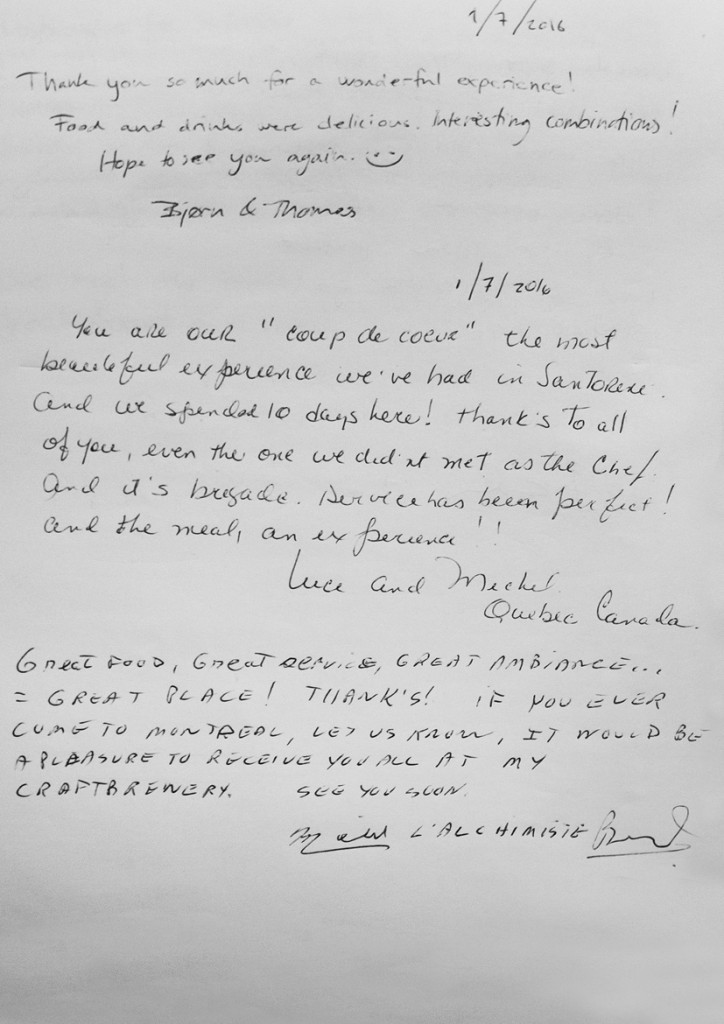 1/7/2016
Thank you so much for a wonderful experience!
Food and drinks were delicious. Interesting combinations!
Hope to see you again. :)
Bjørn & Thomas
1/7/2016
You are our "coup de coeur" the most
beauteful experience we've had in Santorene.
And we spended 10 days here! thank's to all
of you, even the one we did'nt met as the Chef.
And it's brigade. Service has been perfect!
and the meal, an experience!!
Luce and Michel
Quebec Canada.
Great food, Great service, GREAT AMBIANCE...
= GREAT PLACE! THANK'S! IF YOU EVER
COME TO MONTREAL, LET US KNOW, IT WOULD BE
A PLEASURE TO RECEIVE YOU ALL AT MY
CRAFTBREWERY. SEE YOU SOON.
L'ALCHIMISTE